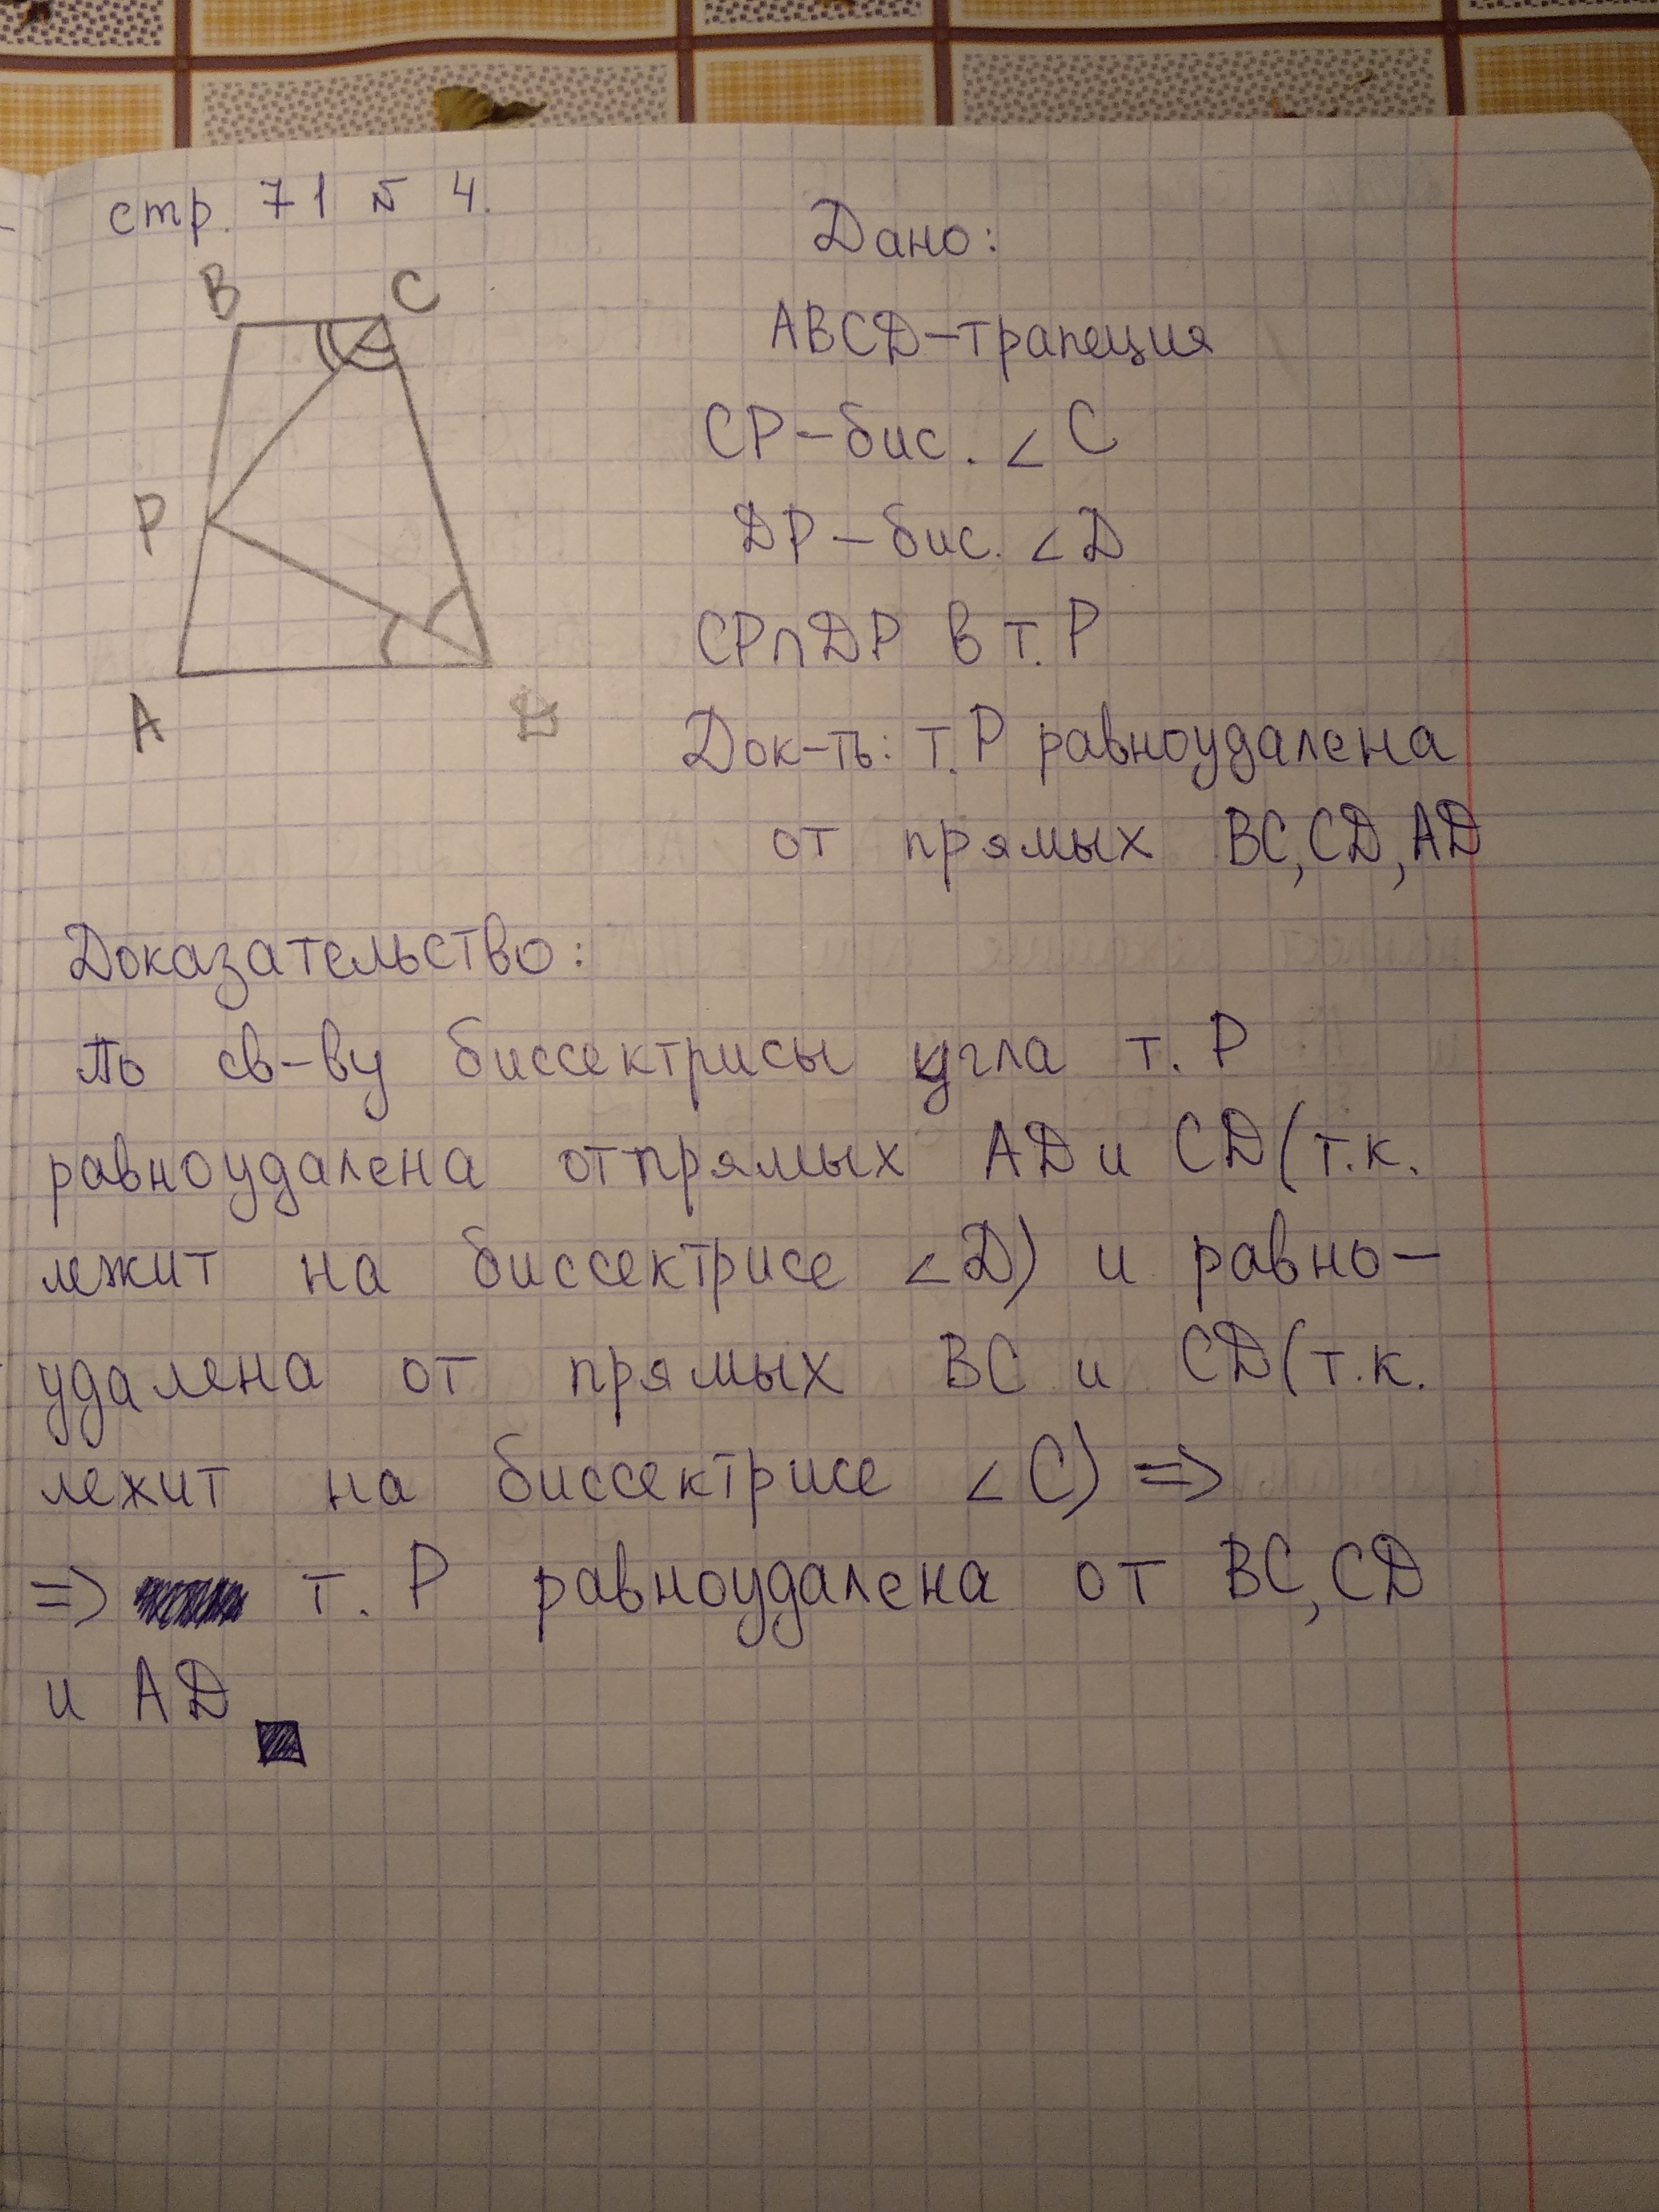 стр. 71 № 4.
B C
P
A D
Дано:
ABCD-трапеция
CP-бис. ∠C
DP-бис. ∠D
CP∩DP в т. P
Док-ть: т.P равноудалена
от прямых BC,CD,AD
Доказательство:
По св-ву биссектрисы угла т. P
равноудалена от прямых AD и CD(т.к.
лежит на биссектрисе ∠D) и равно-
удалена от прямых BC и CD(т.к.
лежит на биссектрисе ∠C) =>
=> т. P равноудалена от BC,CD
и AD